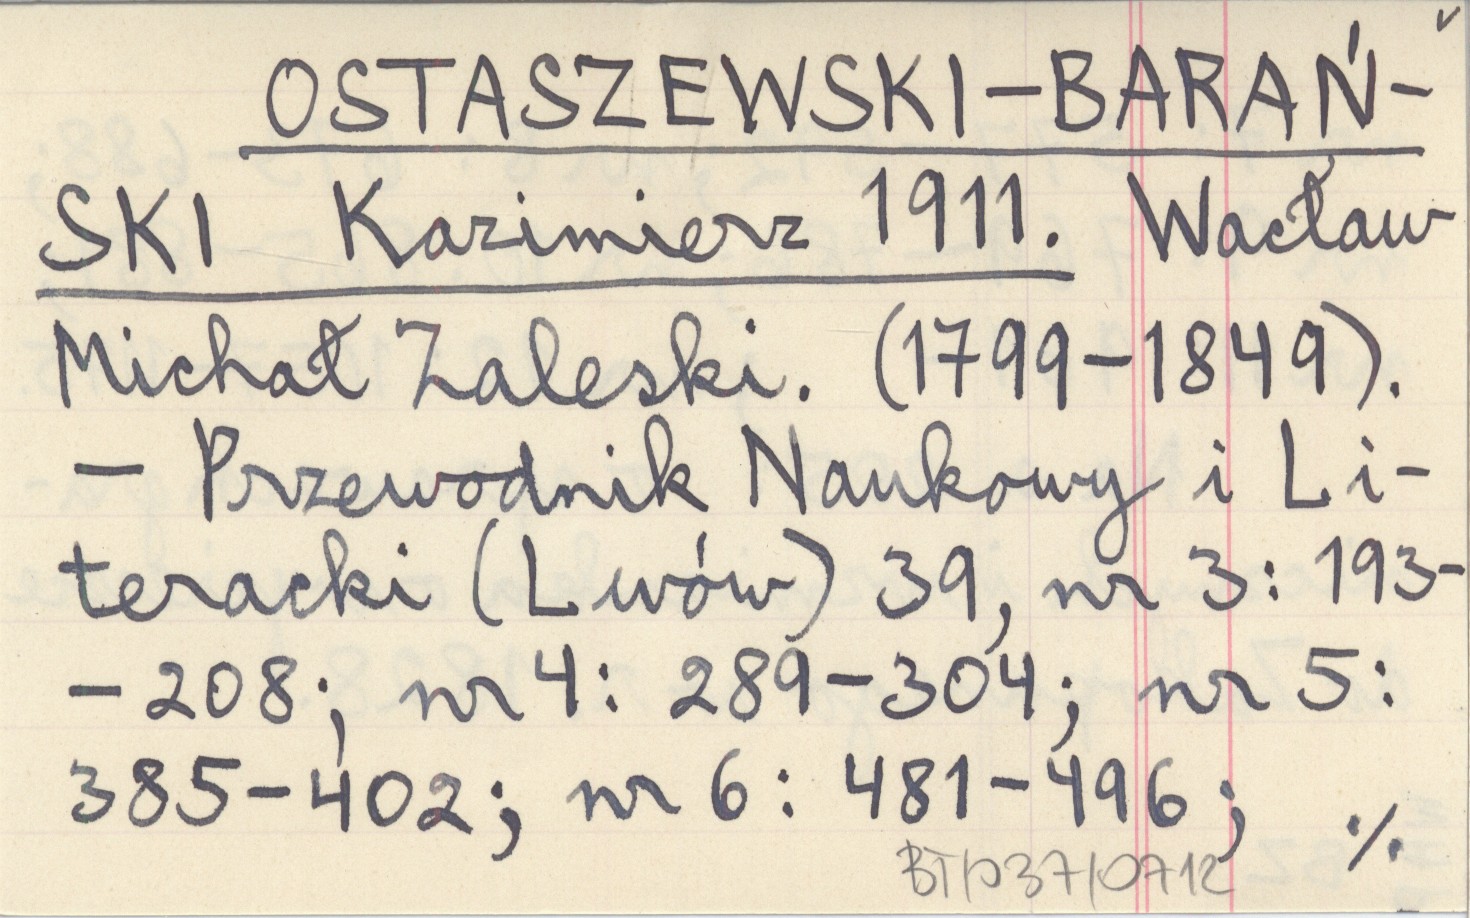 OSTASZEWSKI-BARAŃ-
SKI Kazimierz 1911. Wacław
Michał Zaleski. (1799-1849).
- Przewodnik Naukowy i Li-
teracki (Lwów) 39, nr 3: 193-
- 208; nr 4: 289-304; nr 5:
385-402; nr 6: 481-496; ·/.
BT/037/0712